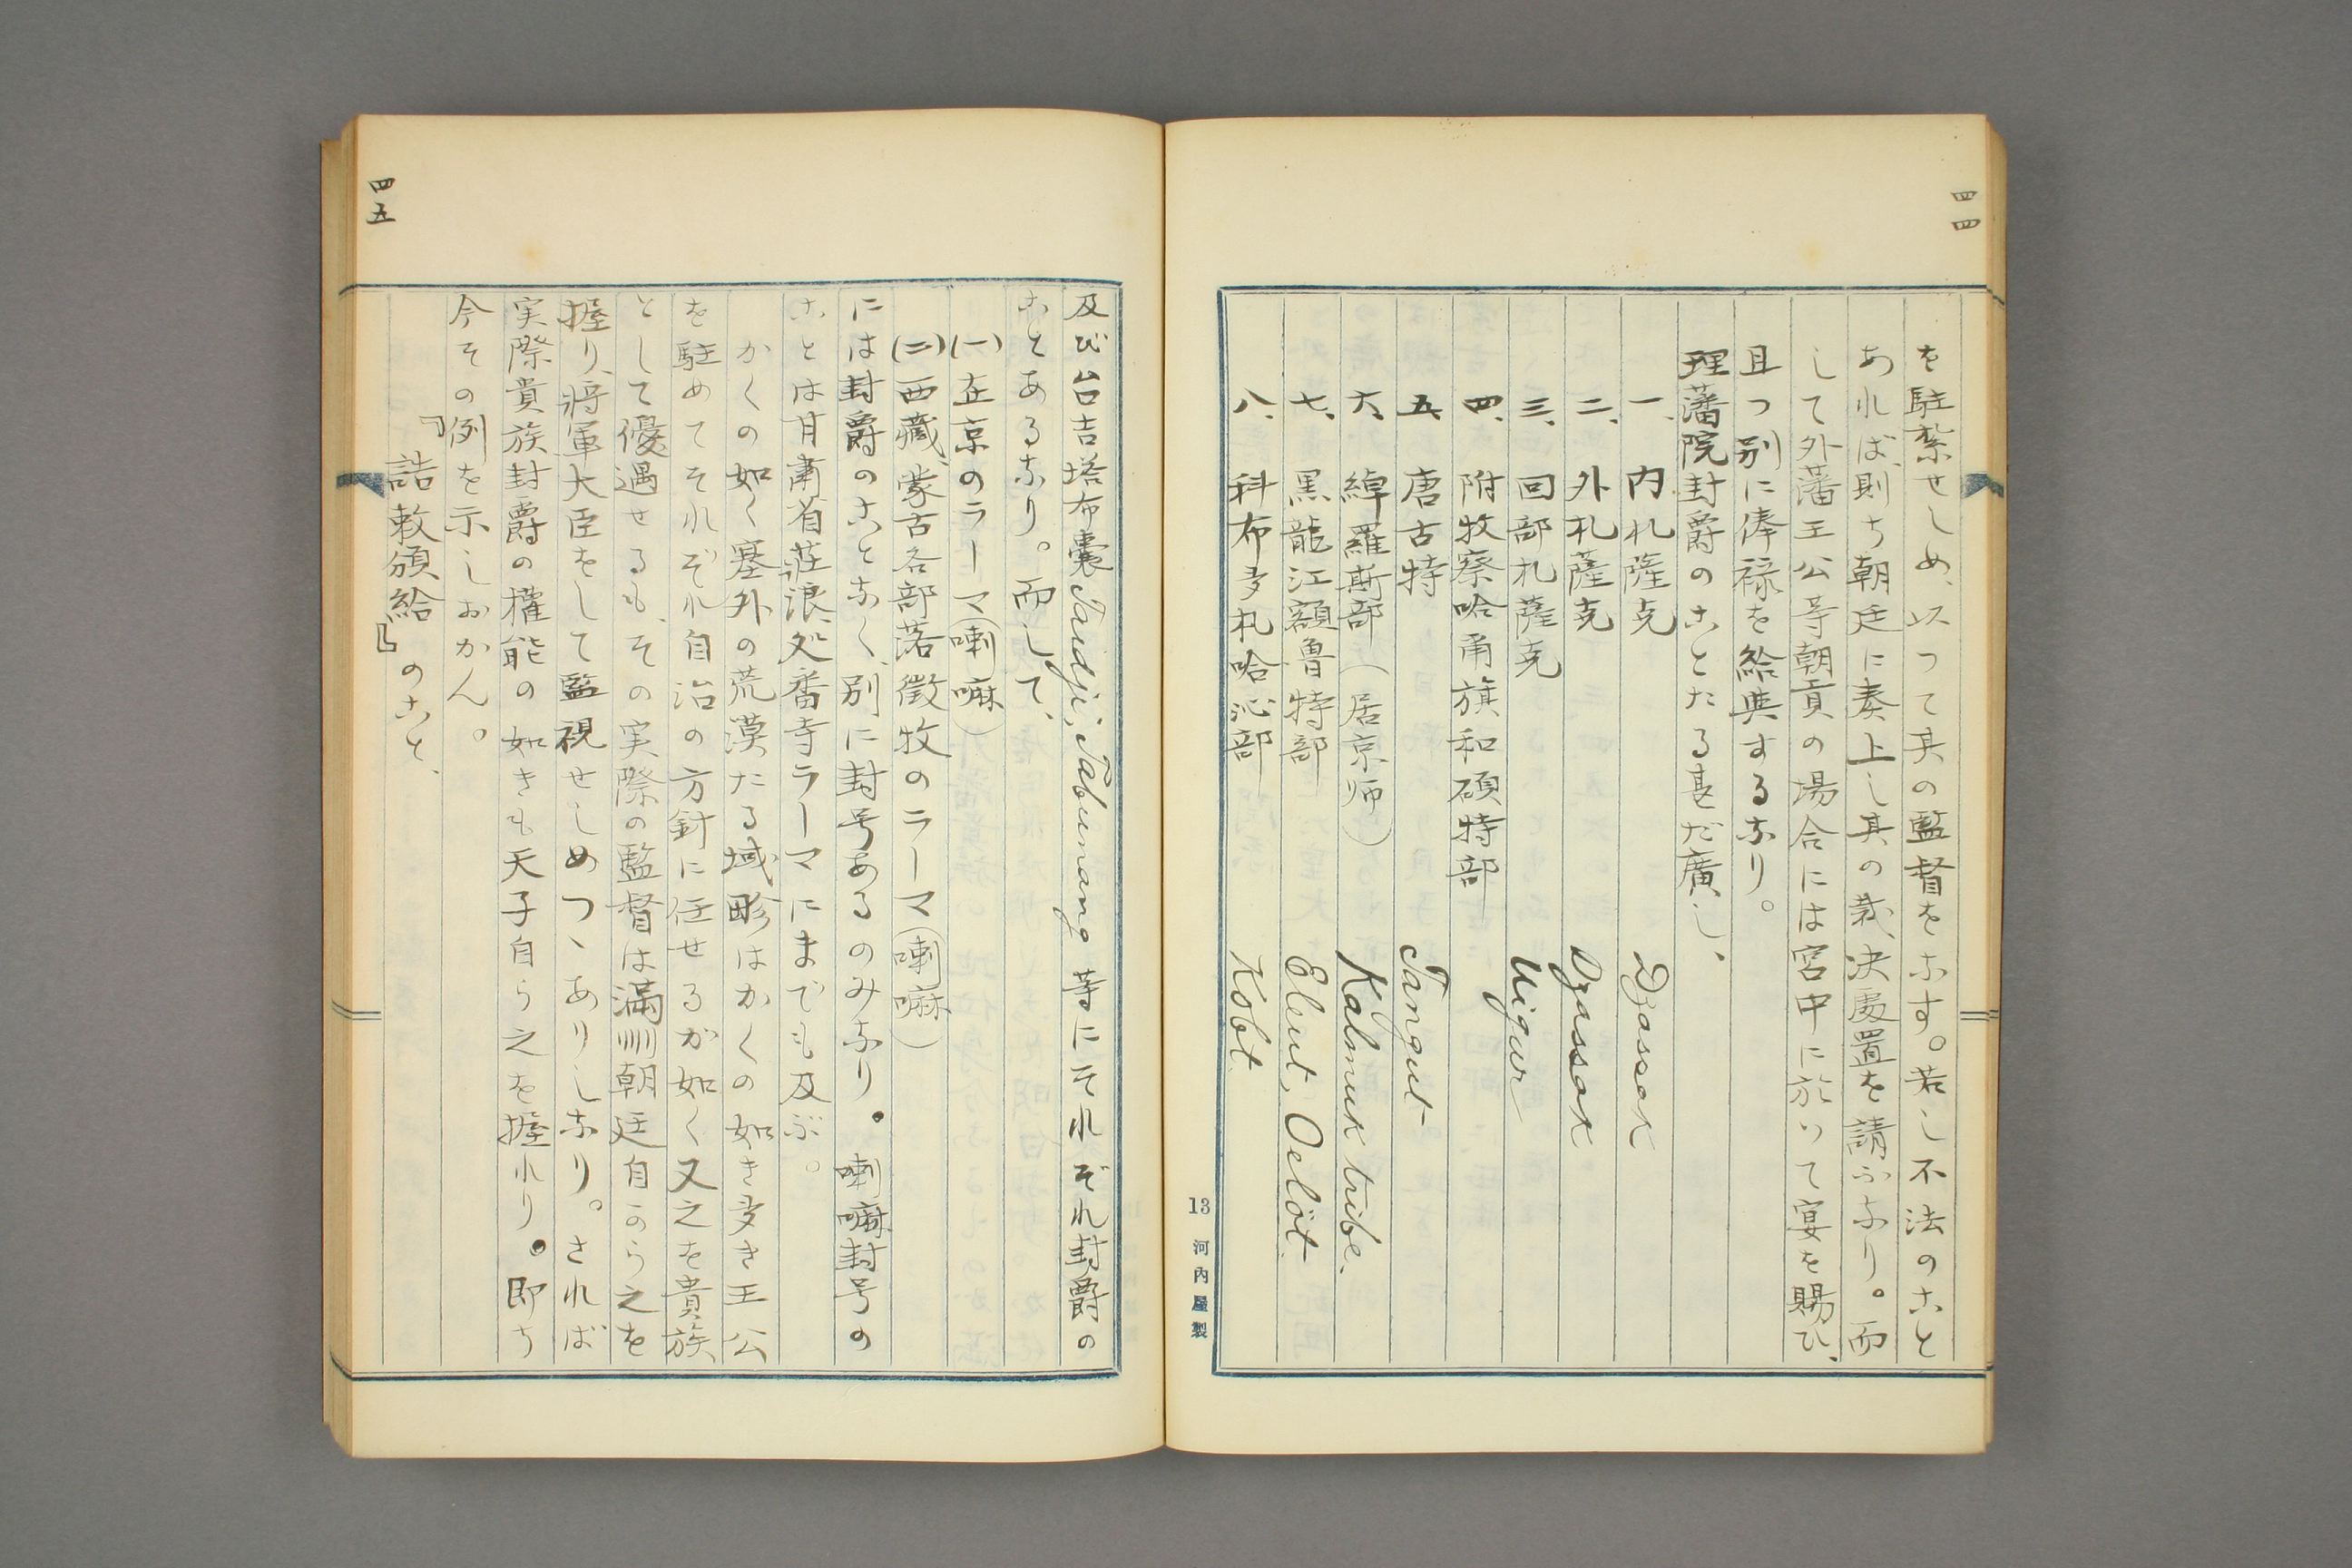 四四
を駐紮せしめ、以つて其の監督をなす。若し不法のこと
あれば、則ち朝廷に奏上し其の裁決處置を請ふなり。而
して外藩王公等朝貢の場合には宮中に於いて宴を賜ひ、
且つ別に俸禄を給典するなり。
理藩院封爵のことたる甚だ廣し、
一、内札薩克 Dzassak
二、外札薩克 Dzassak
三、回部札薩克 Uigur
四、附牧察哈甬旗和碩特部
五、唐古特 Tangut
六、綽羅斯部（居京师） Kalmuk tribe.
七、黒龍江額魯特部 Eleut, Oelöt.
八、科布多札哈沁部 Kobt.
13 河内屋製
四五
及び台吉塔布囊 Taidji, Tabunang 等にそれぞれ封爵の
ことあるなり。而して、
(一)在京のラーマ（喇嘛）
(二)西藏、蒙古各部落徴牧のラーマ（喇嘛）
には封爵のことなく、別に封号あるのみなり。喇嘛封号の
ことは甘肅省荘浪処番寺ラーマにまでも及ぶ。
かくの如く塞外の荒漠たる域畛はかくの如き多き王公
を駐めてそれぞれ自治の方針に任せるが如く又之を貴族
として優遇せるも、その実際の監督は滿洲朝廷自から之を
握り、将軍大臣をして監視せしめつゝありしなり。されば
実際貴族封爵の権能の如きも天子自ら之を握れり。即ち
今その例を示しおかん。
『誥敕頒給』のこと、